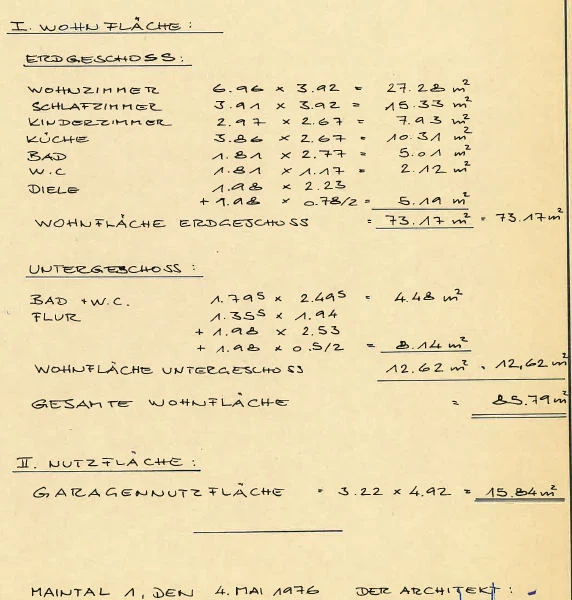 I. WOHNFLÄCHE:
ERDGESCHOSS:
WOHNZIMMER 6.96 x 3.92 = 27.28 m²
SCHLAFZIMMER 3.91 x 3.92 = 15.33 m²
KINDERZIMMER 2.97 x 2.67 = 7.93 m²
KÜCHE 3.86 x 2.67 = 10.31 m²
BAD 1.81 x 2.77 = 5.01 m²
W.C 1.81 x 1.17 = 2.12 m²
DIELE 1.98 x 2.23
+ 1.98 x 0.78/2 = 5.19 m²
WOHNFLÄCHE ERDGESCHOSS = 73.17 m² = 73.17 m²
UNTERGESCHOSS:
BAD + W.C. 1.79⁵ x 2.49⁵ = 4.48 m²
FLUR 1.35⁵ x 1.94
+ 1.98 x 2.53
+ 1.98 x 0.5/2 = 8.14 m²
WOHNFLÄCHE UNTERGESCHOSS 12.62 m² = 12,62 m²
GESAMTE WOHNFLÄCHE = 85.79 m²
II. NUTZFLÄCHE:
GARAGENNUTZFLÄCHE = 3.22 x 4.92 = 15.84 m²
MAINTAL 1, DEN 4. MAI 1976 DER ARCHITEKT: